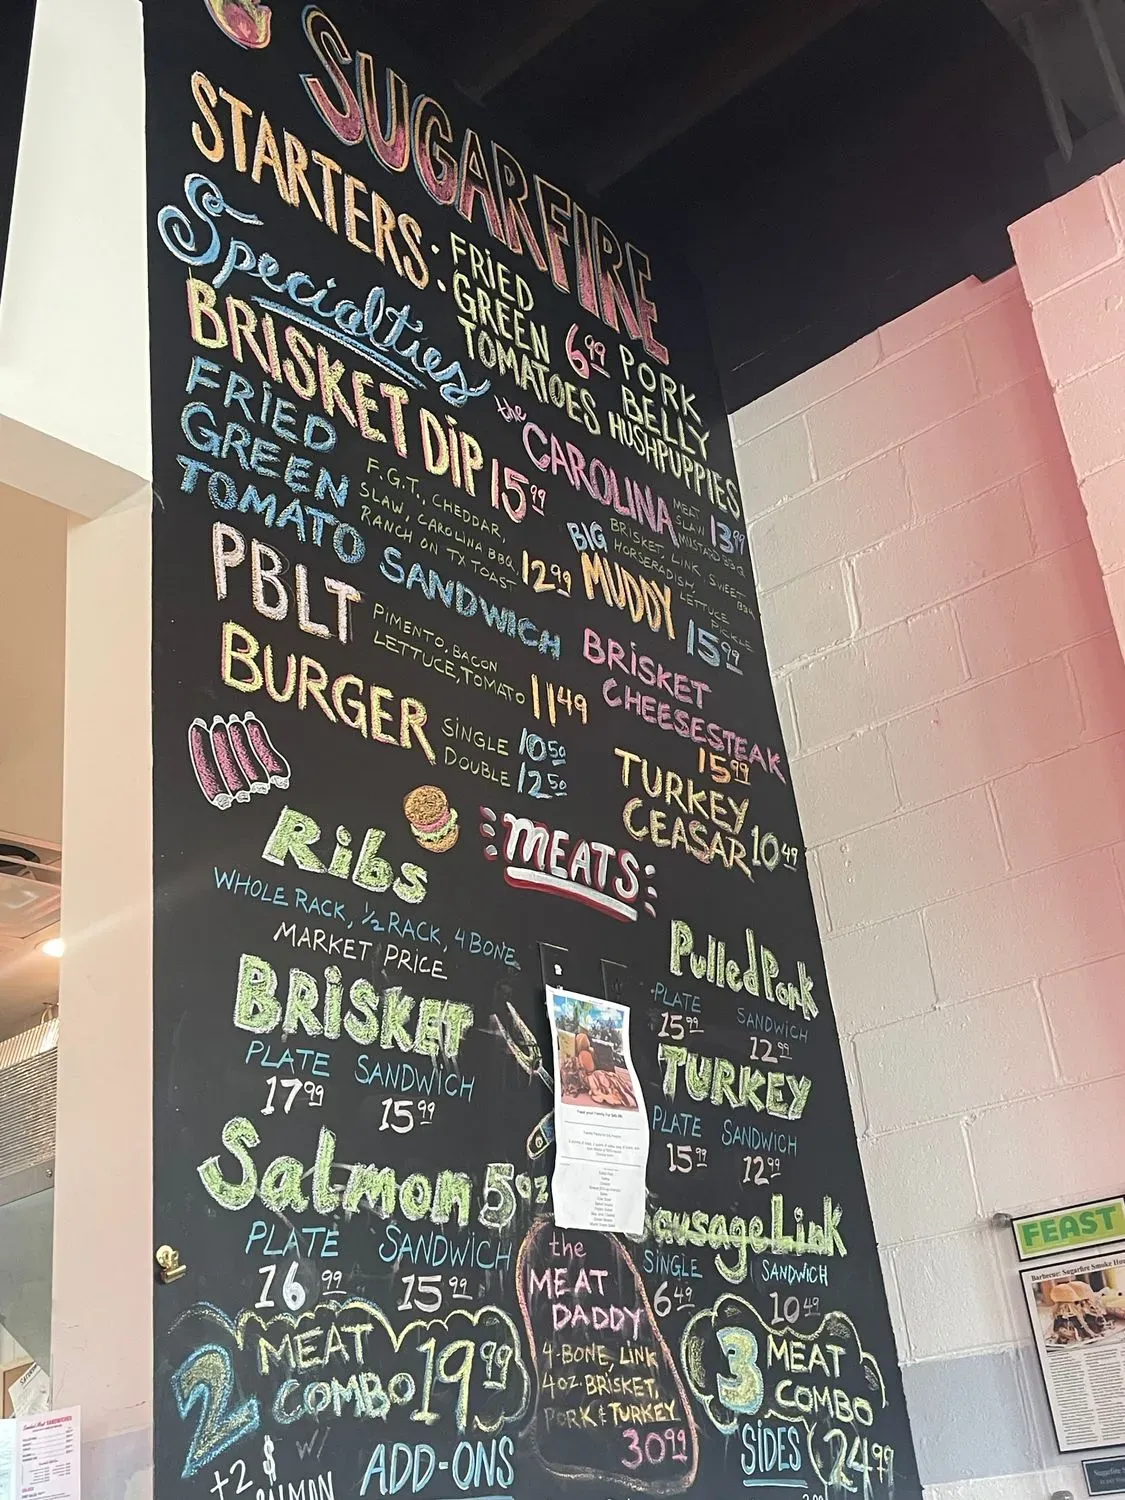 SUGARFIRE
STARTERS:
FRIED
GREEN
TOMATOES
6.99
PORK
BELLY
HUSHPUPPIES
Specialties
BRISKET DIP 15.99
FRIED
GREEN
TOMATO SANDWICH
F.G.T., CHEDDAR,
SLAW, CAROLINA BBQ,
RANCH ON TX TOAST
12.99
PBLT
PIMENTO, BACON
LETTUCE, TOMATO
11.49
BURGER
SINGLE 10.50
DOUBLE 12.50
the
CAROLINA
MEAT
SLAW
MUSTARD BBQ
13.99
BIG
MUDDY
BRISKET, LINK, SWEET BBQ
HORSERADISH,
LETTUCE
PICKLE
15.99
BRISKET
CHEESESTEAK
15.99
TURKEY
CEASAR 10.49
MEATS
Ribs
WHOLE RACK, 1/2 RACK, 4 BONE
MARKET PRICE
BRISKET
PLATE SANDWICH
17.99 15.99
Salmon 5oz
PLATE SANDWICH
16.99 15.99
Pulled Pork
PLATE SANDWICH
15.99 12.99
TURKEY
PLATE SANDWICH
15.99 12.99
Sausage Link
SINGLE SANDWICH
6.49 10.49
2 MEAT
COMBO 19.99
+2$ w/
SALMON
the
MEAT
DADDY
4-BONE, LINK
4OZ. BRISKET,
PORK & TURKEY
30.99
3 MEAT
COMBO
24.99
ADD-ONS
SIDES
FEAST